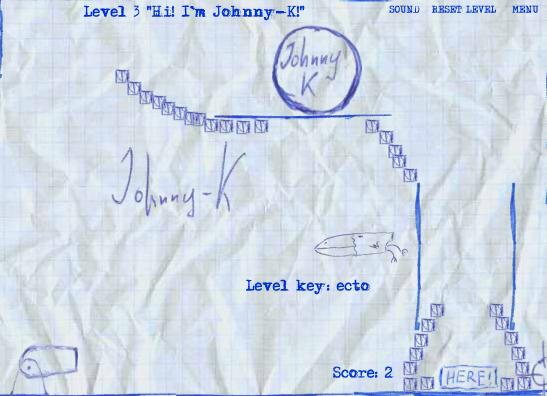 Level 3 "Hi! I'm Johnny-K!"
SOUND RESET LEVEL MENU
Johnny
K
Johnny-K
Level key: ecto
Score: 2
HERE!